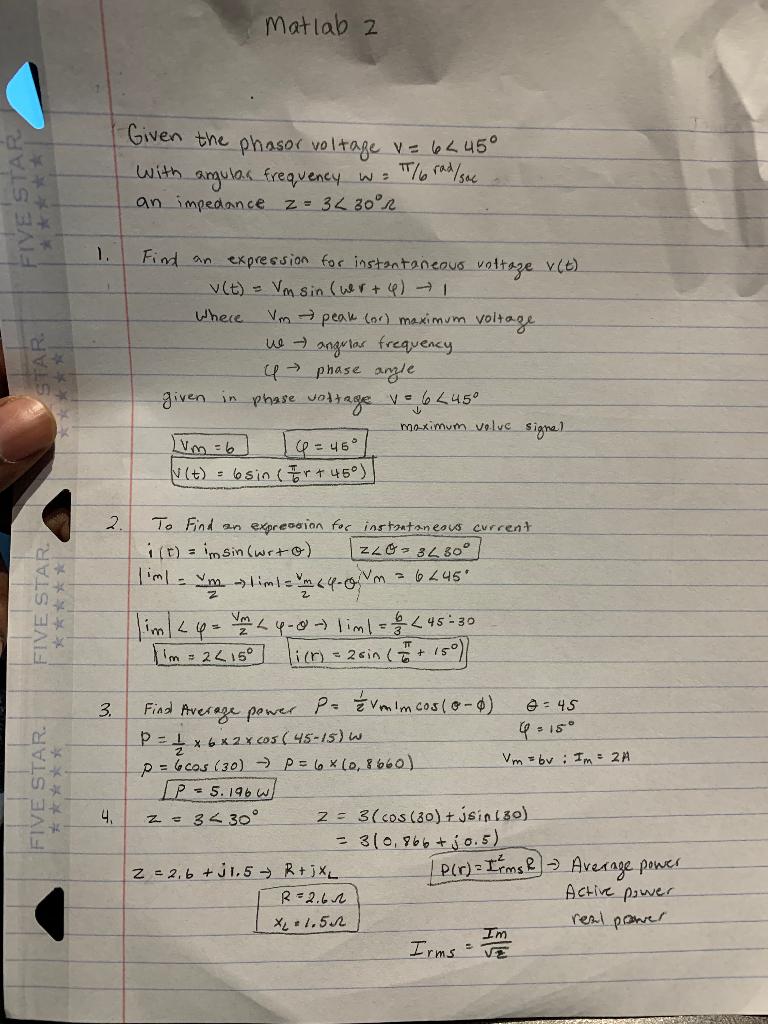 Matlab 2
Given the phasor voltage v = 6∠45°
with angular frequency w = π/6 rad/sec
an impedance z = 3∠30°Ω
1. Find an expression for instantaneous voltage v(t)
v(t) = Vm sin(wt + φ) → 1
Where Vm → peak (or) maximum voltage
w → angular frequency
φ → phase angle
given in phase voltage v = 6∠45°
maximum value signal
Vm = 6 φ = 45°
v(t) = 6 sin(π/6 t + 45°)
2. To Find an expression for instantaneous current
i(t) = im sin(wt + θ) z∠θ = 3∠30°
|im| = Vm/z → |im| = Vm/z ∠φ-θ Vm = 6∠45°
|im|∠φ = Vm/z ∠φ-θ → |im| = 6/3 ∠45-30
im = 2∠15° i(t) = 2 sin(π/6 + 15°)
3. Find Average power P = 1/2 Vm Im cos(θ-φ) θ = 45
φ = 15°
P = 1/2 x 6 x 2 x cos(45-15) w
Vm = 6v ; Im = 2A
P = 6cos(30) → P = 6 x (0,8660)
P = 5.196 w
4. z = 3∠30° z = 3(cos(30) + jsin(30)
= 3(0,866 + j0.5)
z = 2,6 + j1.5 → R + jXL P(t) = I²rms R → Average power
Active power
real power
R = 2.6Ω
XL = 1.5Ω
Irms = Im/√2
FIVE STAR.
FIVE STAR.
FIVE STAR.
FIVE STAR.